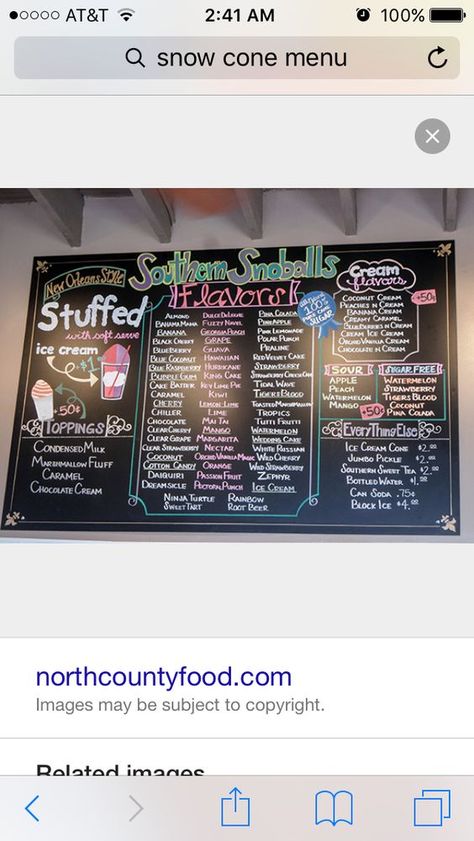 AT&T 2:41 AM 100%
snow cone menu
New Orleans Style
Southern Snoballs
Flavors
Stuffed
with soft serve
ice cream
+$1
+50¢
Toppings
Condensed Milk
Marshmallow Fluff
Caramel
Chocolate Cream
Almond
Bahama Mama
Banana
Black Cherry
Blueberry
Blue Coconut
Blue Raspberry
Bubble Gum
Cake Batter
Caramel
Cherry
Chiller
Chocolate
Clear Cherry
Clear Grape
Clear Strawberry
Coconut
Cotton Candy
Daiquiri
Dreamsicle
Dulce DeLeche
Fuzzy Navel
Georgia Peach
Grape
Guava
Hawaiian
Hurricane
King Cake
Key Lime Pie
Kiwi
Lemon Lime
Lime
Mai Tai
Mango
Margarita
Nectar
Orchid Vanilla Magic
Orange
Passion Fruit
Pina Colada
Pineapple
Pink Lemonade
Polar Punch
Praline
Red Velvet Cake
Strawberry
Strawberry Cheese Cake
Tidal Wave
Tigers Blood
Toasted Marshmallow
Tropics
Tutti Frutti
Watermelon
Wedding Cake
White Russian
Wild Cherry
Wild Strawberry
Zephyr
Ice Cream
Ninja Turtle Rainbow
Sweet Tart Root Beer
100%
Pure Cane
Sugar
Cream
flavors
+50¢
Coconut Cream
Peaches n Cream
Banana Cream
Creamy Caramel
Blueberries n Cream
Cream Ice Cream
Orchid Vanilla Cream
Chocolate n Cream
Sour
Apple
Peach
Watermelon
Mango
+50¢
Sugar Free
Watermelon
Strawberry
Tigers Blood
Coconut
Pina Colada
Everything Else
Ice Cream Cone $2.00
Jumbo Pickle $2.00
Southern Sweet Tea $2.00
Bottled Water $1.00
Can Soda .75¢
Block Ice $4.00
northcountyfood.com
Images may be subject to copyright.
Related images